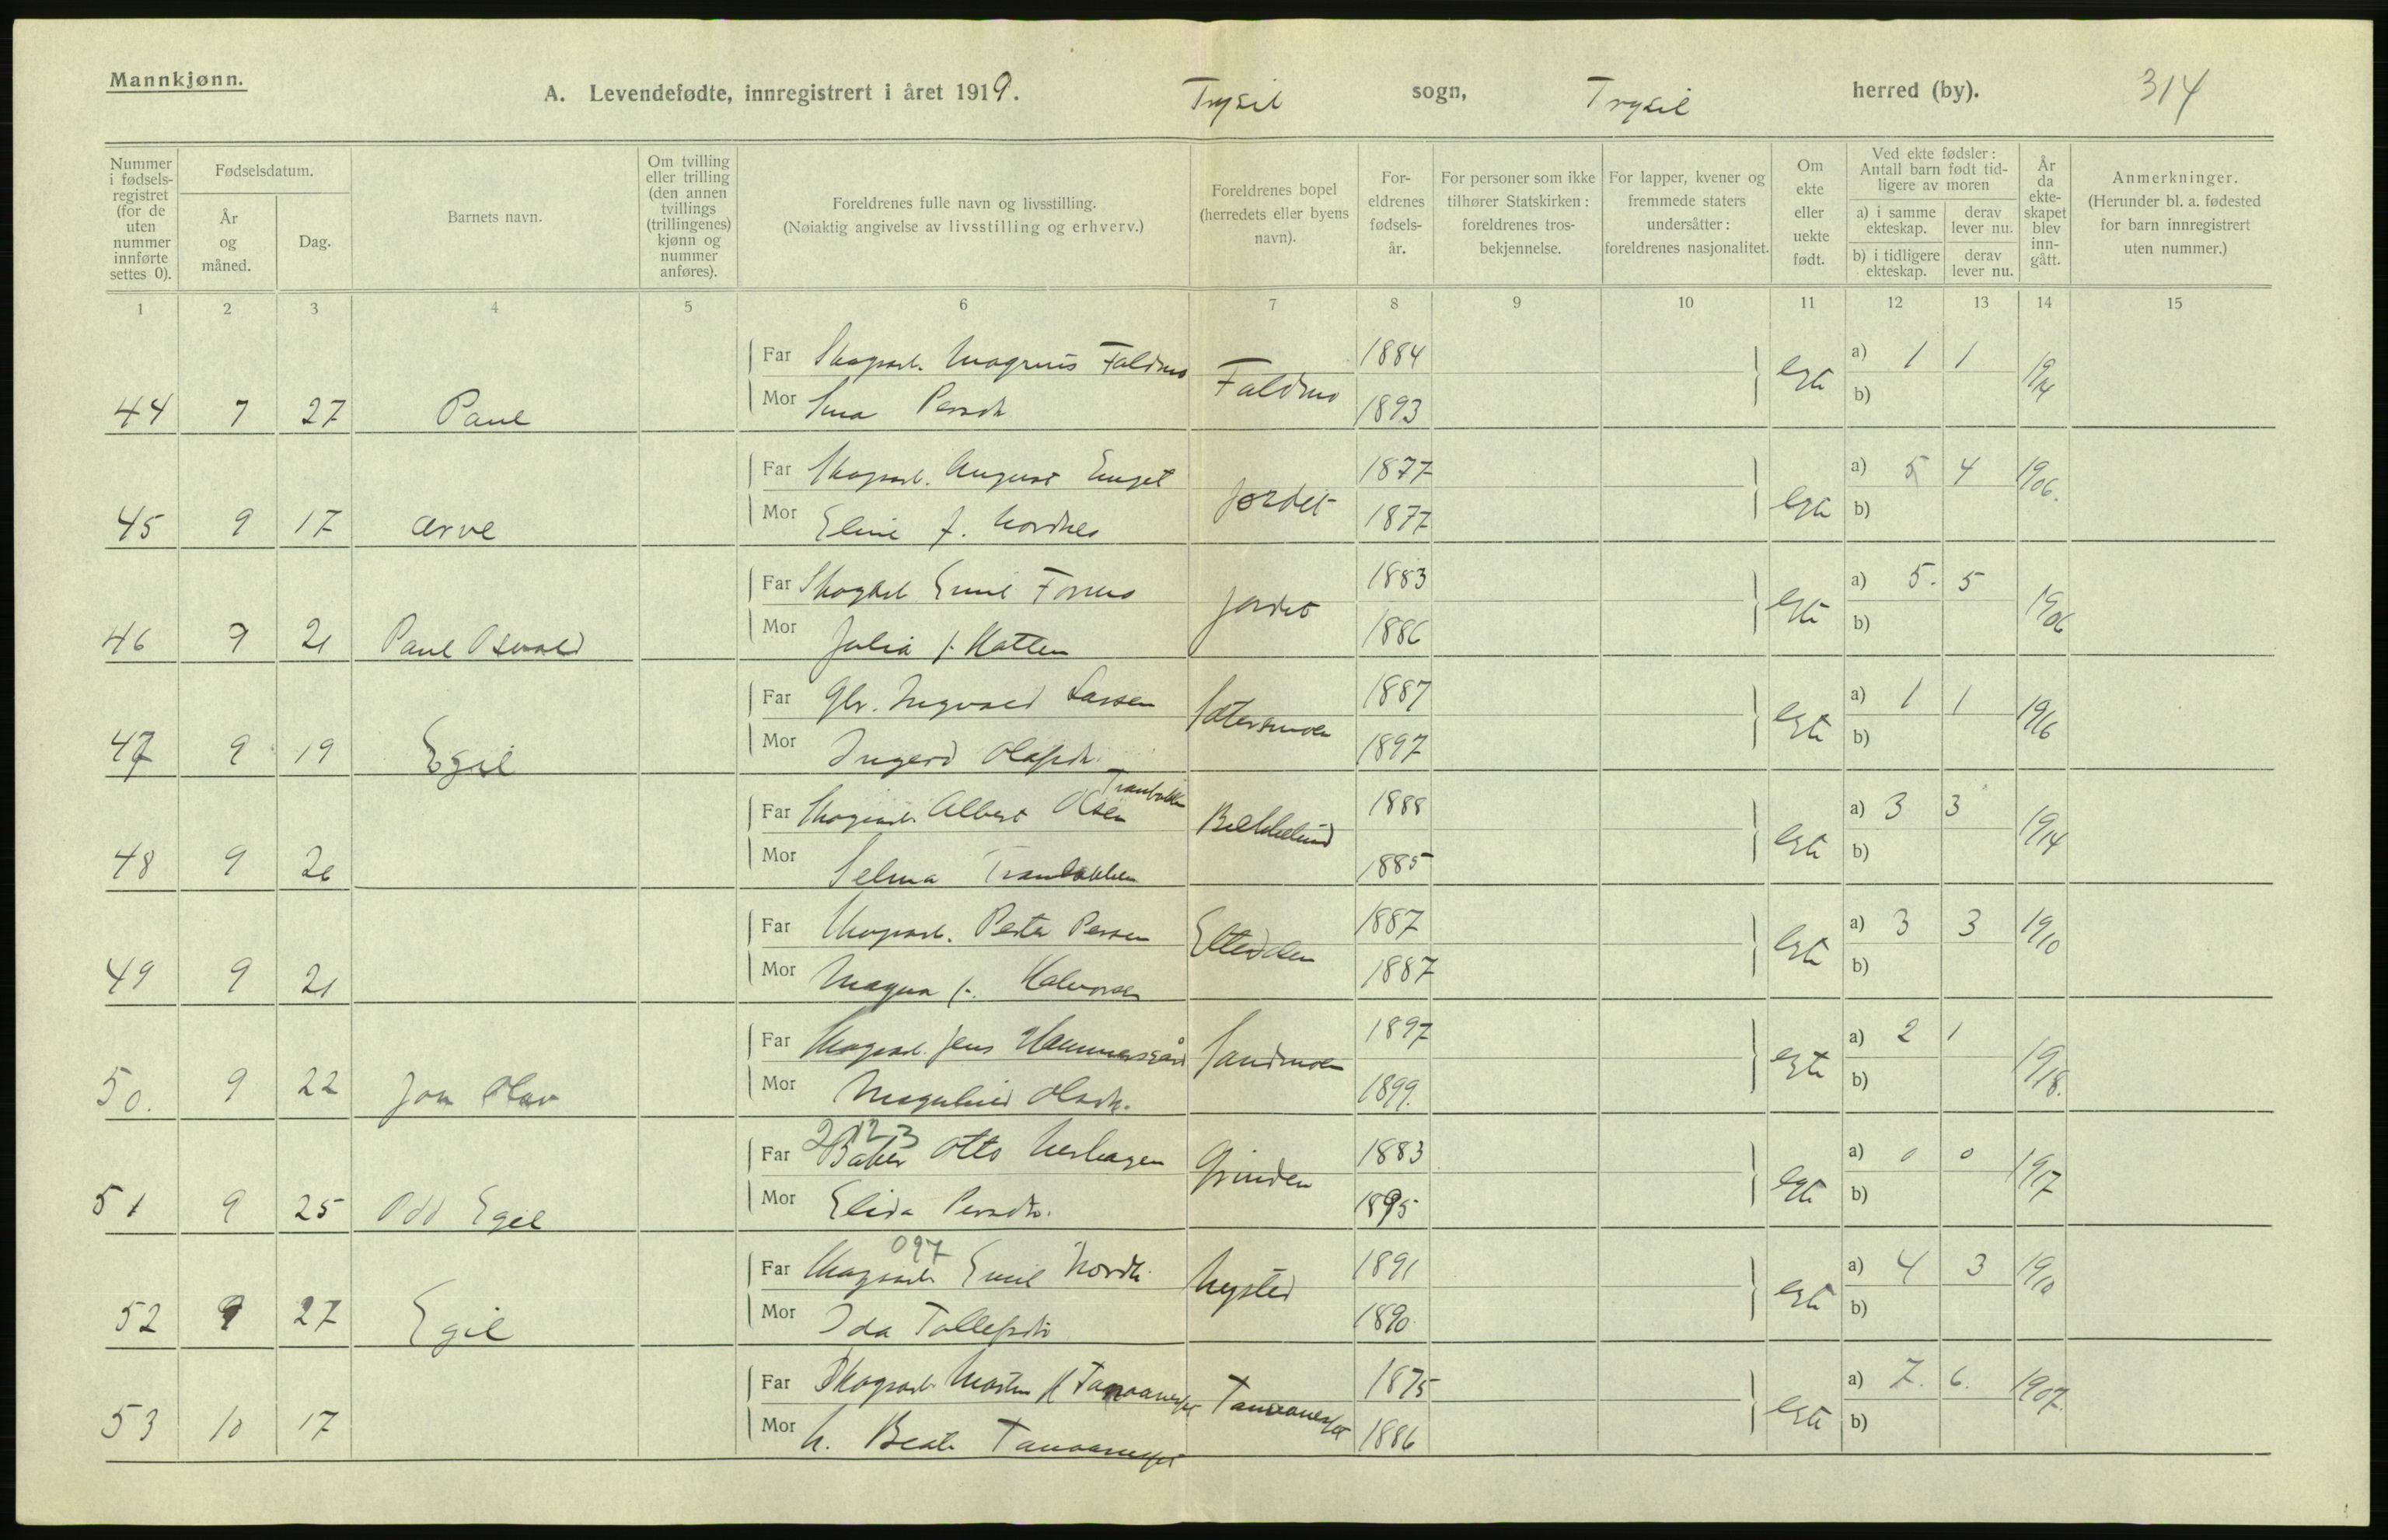 Mannkjønn.
A. Levendefødte, innregistrert i året 1919. Trysil sogn, Trysil herred (by). 314
Nummer i fødselsregistret (for de uten nummer innførte settes 0).
Fødselsdatum.
År og måned.
Dag.
Barnets navn.
Om tvilling eller trilling (den annen tvillings (trillingenes) kjønn og nummer anføres).
Foreldrenes fulle navn og livsstilling.
(Nøiaktig angivelse av livsstilling og erhverv.)
Foreldrenes bopel (herredets eller byens navn).
Foreldrenes fødselsår.
For personer som ikke tilhører Statskirken: foreldrenes trosbekjennelse.
For lapper, kvener og fremmede staters undersåtter: foreldrenes nasjonalitet.
Om ekte eller uekte født.
Ved ekte fødsler: Antall barn født tidligere av moren
a) i samme ekteskap.
derav lever nu.
b) i tidligere ekteskap.
derav lever nu.
År da ekteskapet blev inngått.
Anmerkninger.
(Herunder bl. a. fødested for barn innregistrert uten nummer.)
1 2 3 4 5 6 7 8 9 10 11 12 13 14 15
Far Skogsarb. Magnus Faldmo Faldmo 1884 egte a) 1 1 1914
44 7 27 Paul Mor Persdtr 1893 b)
Far Skogsarb. August Enget Jordet 1877 egte a) 5 4 1906.
45 9 17 Arve Mor Eline f. Nordnes 1877 b)
Far Skogarb Emil Jordet 1883 egte a) 5. 5 1906
46 9 21 Paul Osvald Mor Julia f. 1886 b)
Far Gbr. Ingvald Lassen 1887 egte a) 1 1 1916
47 9 19 Egil Mor Ingerd Olafsdtr. 1897 b)
Far Skogsarb Albert Olsen Tranbakken 1888 egte a) 3 3 1914
48 9 26 Mor Selma Tranbakken 1885 b)
Far Skogsarb. Peder Persen Elterdalen 1887 egte a) 3 3 1910
49 9 21 Mor Magna f. Halvorsen 1887 b)
Far Skogsarb. Jens Hammersgård Sandmoen 1897 egte a) 2 1 1918.
50. 9 22 Jon Olav Mor Magnhild Olsdtr. 1899. b)
2123
Far Baker Otto Nerhagen Grinden 1883 egte a) 0 0 1917
51 9 25 Odd Egil Mor Elida Persdtr. 1895 b)
097
Far Skogsarb Emil Nysted 1891 egte a) 4 3 1910
52 9 27 Egil Mor Ida Tollefsdtr 1890. b)
Far Skogsarb Morten Tanaaneset Tanaaneset 1875 egte a) 7. 6. 1907.
53 10 17 Mor Beate Tanaaneset 1886 b)